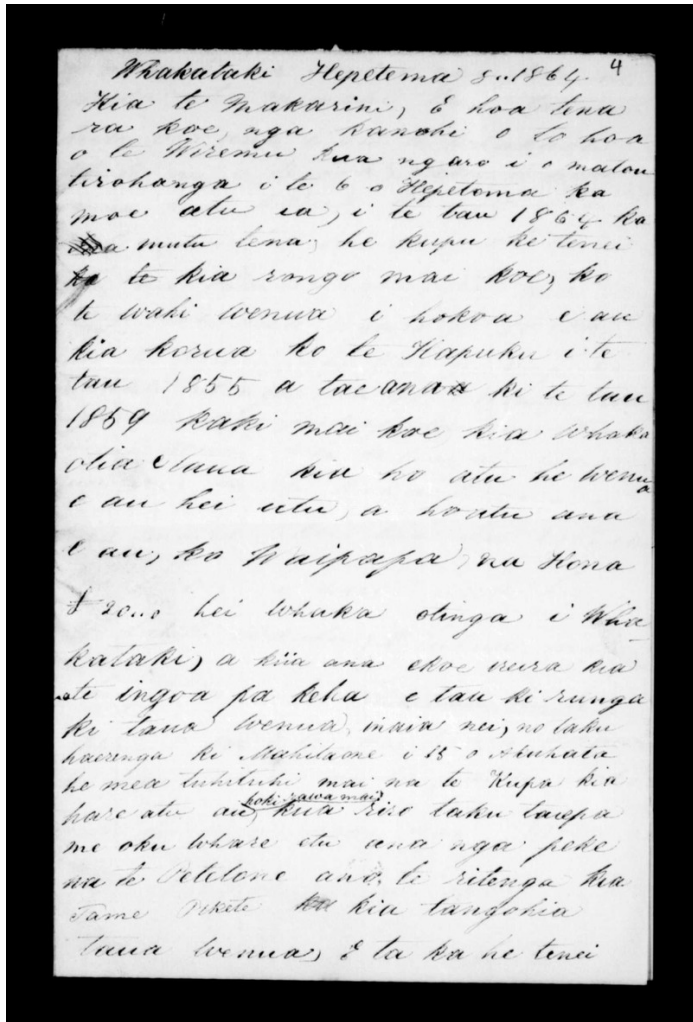 4
Whakataki Hepetema 8..1864
Kia te Makarini, E hoa tena
ra koe, nga kanohi o to hoa
o te Wiremu kua ngaro i o matou
tirohanga i te 6 o Hepetema ka
moe atu ia, i te tau 1864 ka
mutu tena, he kupu ke tenei
kia rongo mai koe, ko
te wahi wenua i hokoa e au
kia korua ko te Hapuku i te
tau 1855 a tae ana ki te tau
1859 kaki mai koe kia whaka
otia e taua kia ho atu he wenua
e au hei utu, a hoatu ana
e au, ko Waipapa, na Hona
£20..0 hei whaka otinga i Wha-
kataki, a kiia ana ekoe ureira kia
te ingoa pakeha e tau ki runga
ki taua wenua, inaia nei, no taku
haerenga ki Mahitaone i 15 o Akuhata
he mea tuhituhi mai na te Kupa kia
hare atu au, hoki rawa mai, kua riro taku taiepa
me oku whare etu ana nga peke
na te Petetone ana, te ritenga kia
Tame Pekete kia tangohia
taua wenua, E ta ka he tenei